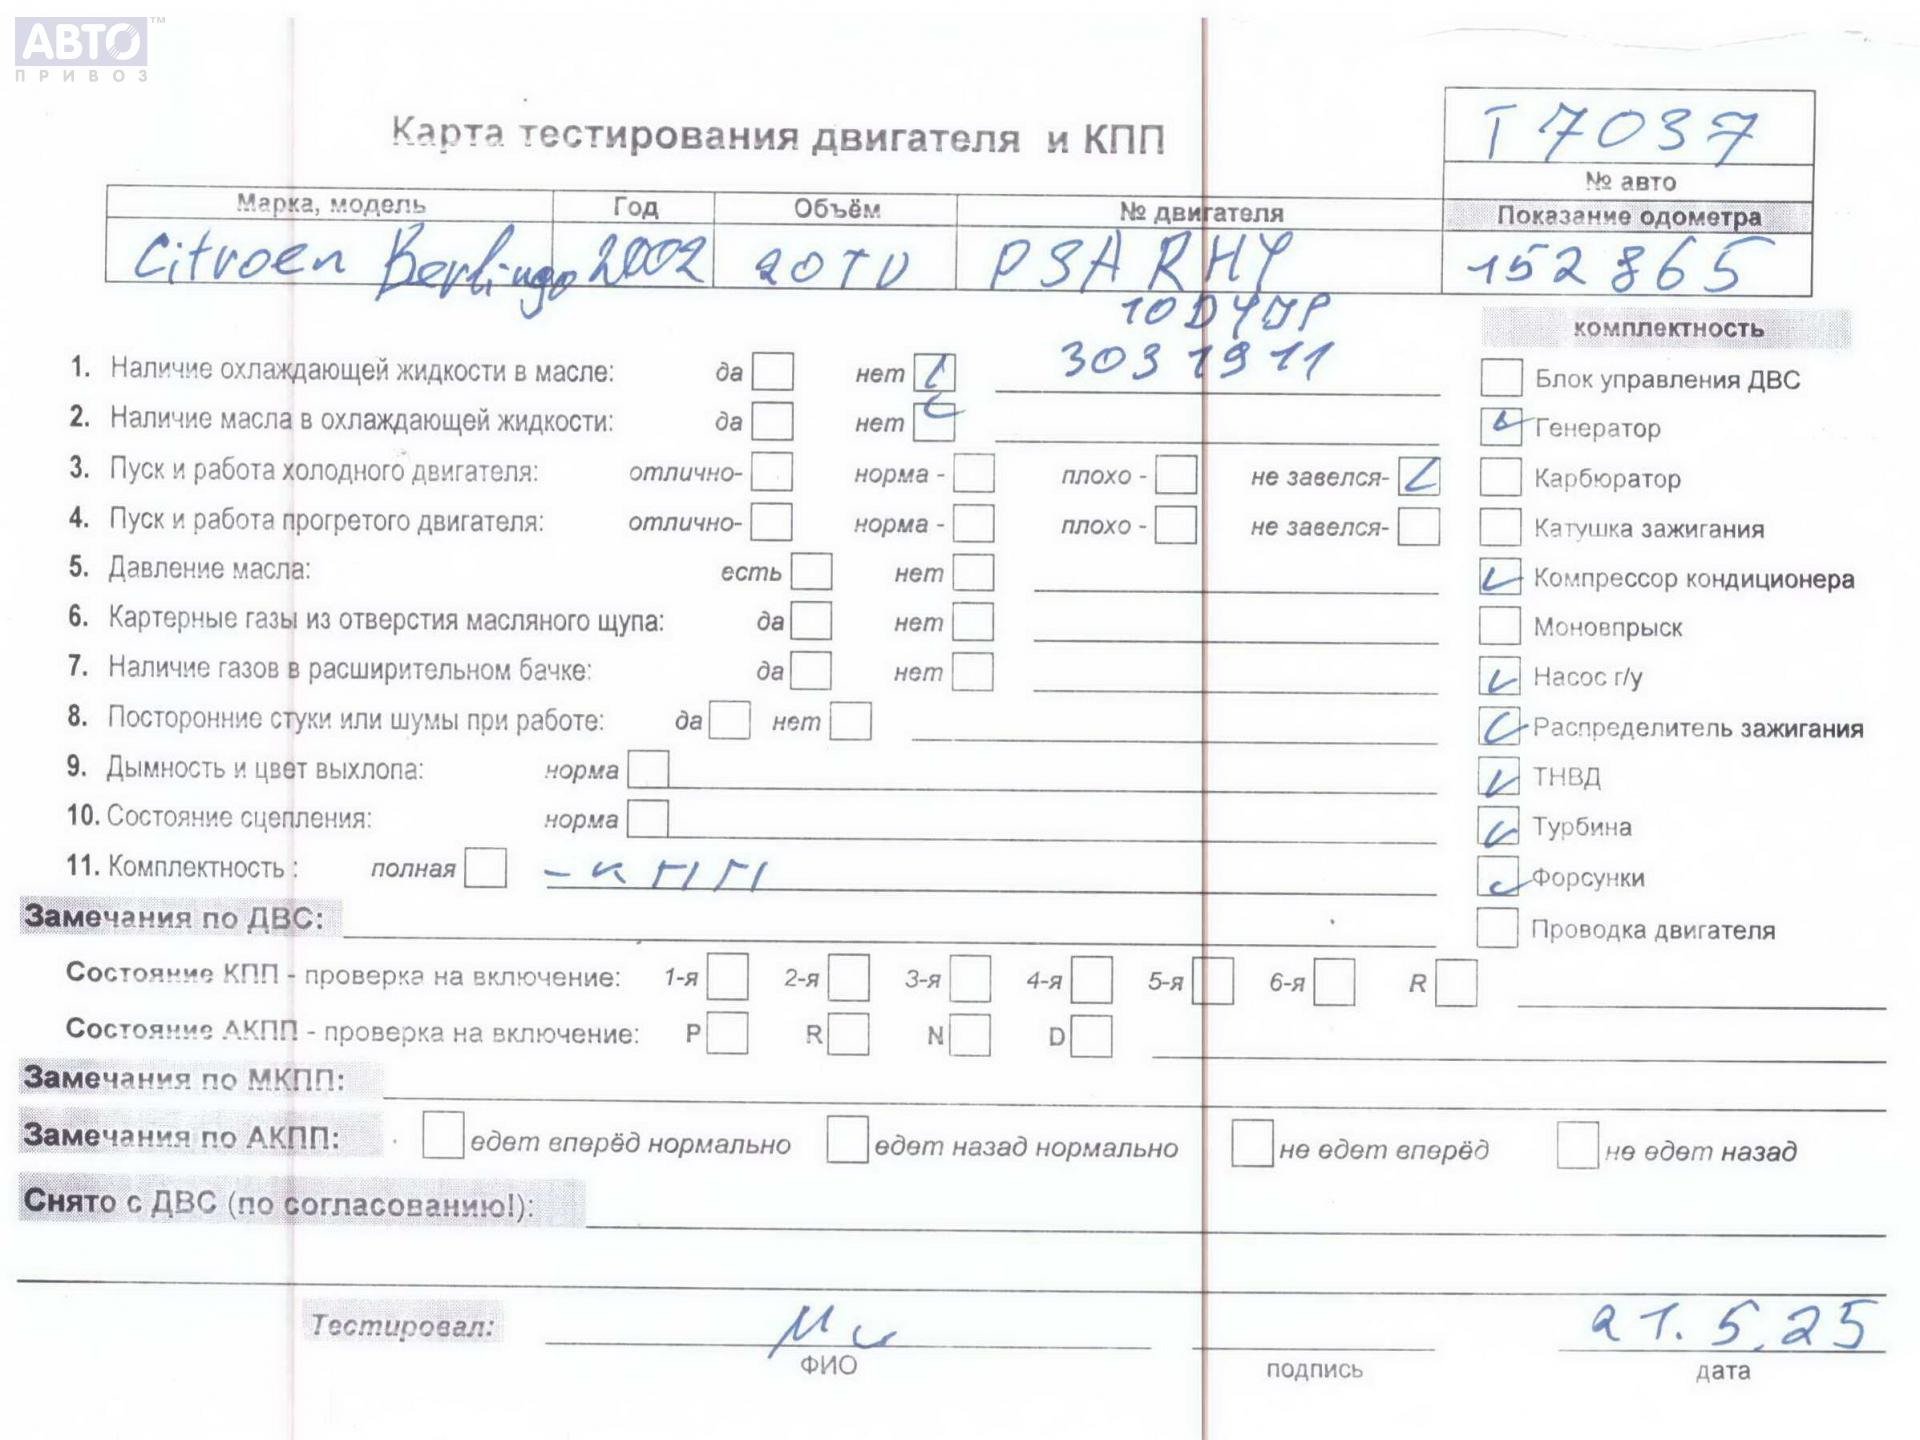 АВТО™
ПРИВОЗ
Карта тестирования двигателя и КПП
Т 7037
№ авто
Марка, модель Год Объём № двигателя Показание одометра
Citroen Berlingo 2002 20TD PSA RHY 152865
10DYJP
3031911
комплектность
1. Наличие охлаждающей жидкости в масле: да нет
Блок управления ДВС
2. Наличие масла в охлаждающей жидкости: да нет
Генератор
3. Пуск и работа холодного двигателя: отлично- норма - плохо - не завелся-
Карбюратор
4. Пуск и работа прогретого двигателя: отлично- норма - плохо - не завелся-
Катушка зажигания
5. Давление масла: есть нет
Компрессор кондиционера
6. Картерные газы из отверстия масляного щупа: да нет
Моновпрыск
7. Наличие газов в расширительном бачке: да нет
Насос г/у
8. Посторонние стуки или шумы при работе: да нет
Распределитель зажигания
9. Дымность и цвет выхлопа: норма
ТНВД
10. Состояние сцепления: норма
Турбина
11. Комплектность : полная - кпп
Форсунки
Замечания по ДВС:
Проводка двигателя
Состояние КПП - проверка на включение: 1-я 2-я 3-я 4-я 5-я 6-я R
Состояние АКПП - проверка на включение: P R N D
Замечания по МКПП:
Замечания по АКПП: едет вперёд нормально едет назад нормально не едет вперёд не едет назад
Снято с ДВС (по согласованию!):
Тестировал: 21.5.25
ФИО подпись дата